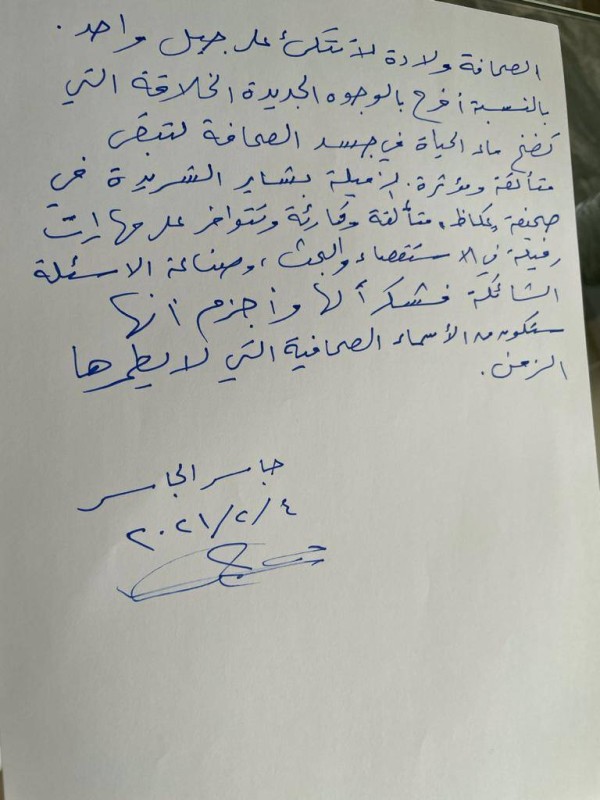 الصحافة ولادة لا تتكئ على جيل واحد.
بالنسبة أفرح بالوجوه الجديدة الخلاقة التي
تضخ ماء الحياة في جسد الصحافة لتبقى
متألقة ومؤثرة. الزميلة بشاير الشريدة في
صحيفة عكاظ، متألقة وقارئة وتتوافر على مهارات
رفيعة في الاستقصاء والبحث، وصناعة الاسئلة
الشائكة فشكراً لها وأجزم أنها
ستكون من الأسماء الصحافية التي لا يطمرها
الزمن.
جاسر الجاسر
٢٠٢١/٢/٤